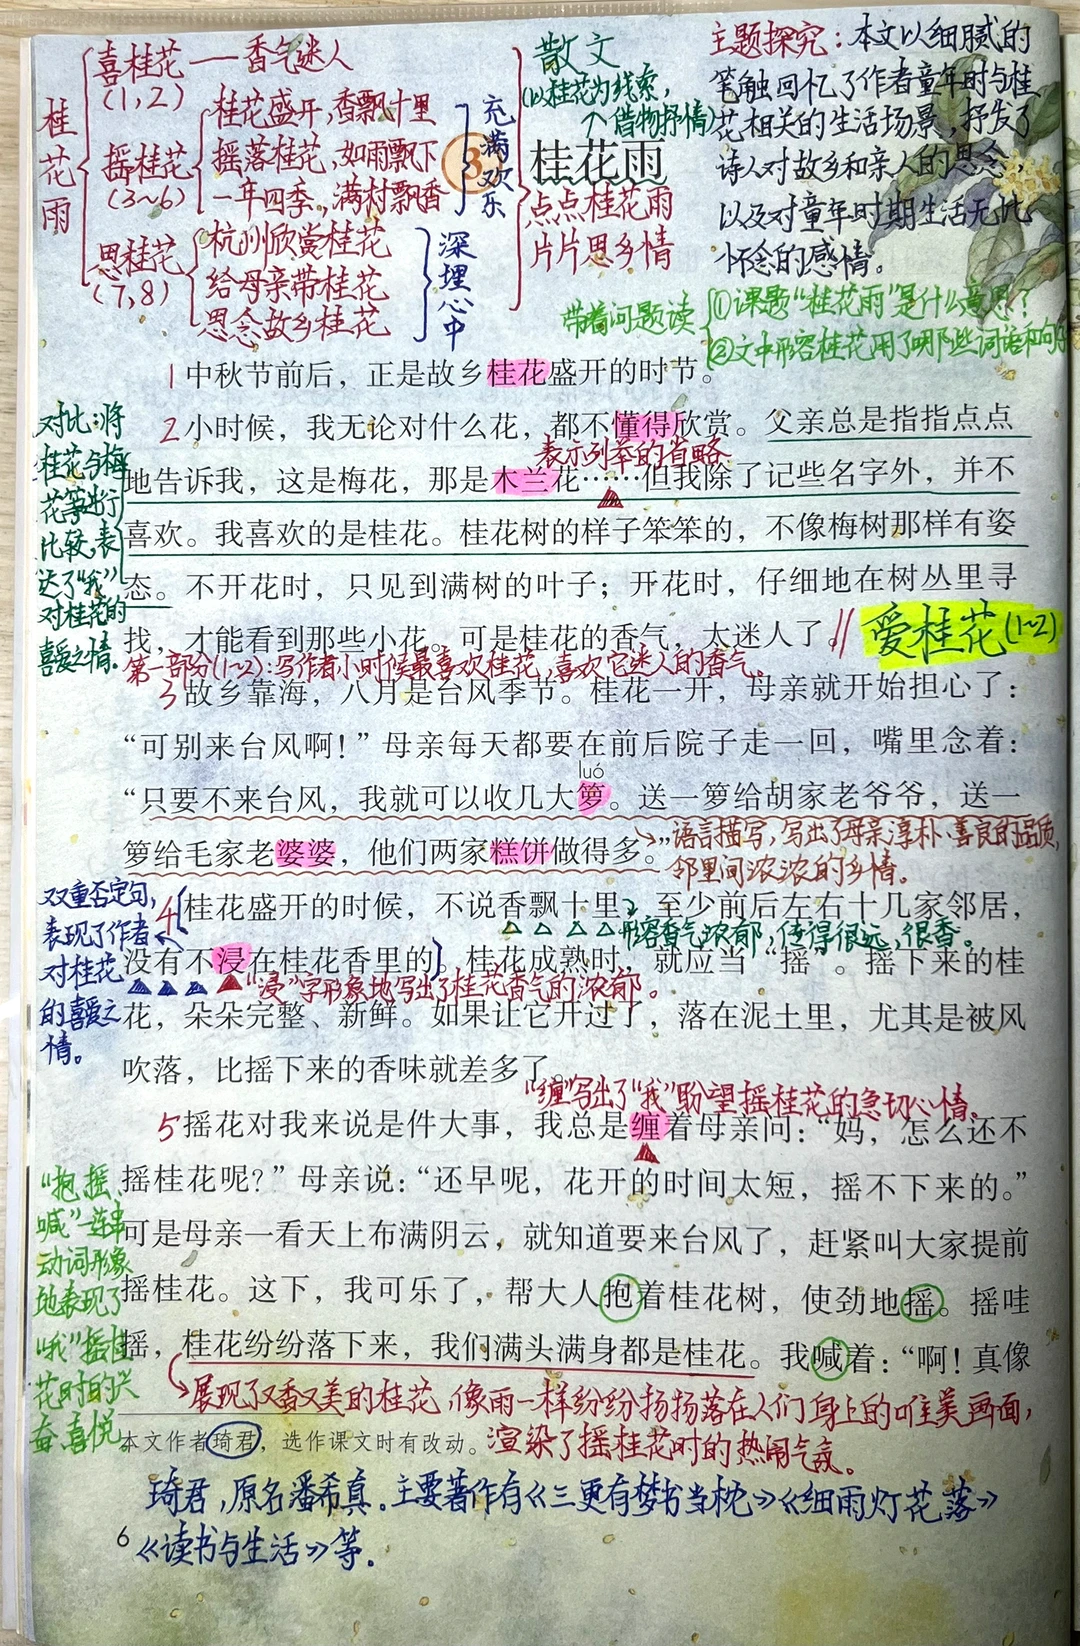 桂花雨
喜桂花——香气迷人
(1,2)
摇桂花
(3~6)
桂花盛开,香飘十里
摇落桂花,如雨飘下
一年四季,满村飘香
充满欢乐
思桂花
(7,8)
杭州欣赏桂花
给母亲带桂花
思念故乡桂花
深埋心中
散文
(以桂花为线索,
借物抒情)
3 桂花雨
点点桂花雨
片片思乡情
主题探究:本文以细腻的
笔触回忆了作者童年时与桂
花相关的生活场景,抒发了
诗人对故乡和亲人的思念
以及对童年时期生活无比
怀念的感情。
带着问题读
①课题“桂花雨”是什么意思?
②文中形容桂花用了哪些词语和句子
1 中秋节前后，正是故乡桂花盛开的时节。
2 小时候，我无论对什么花，都不懂得欣赏。父亲总是指指点点
表示列举的省略
地告诉我，这是梅花，那是木兰花……但我除了记些名字外，并不
喜欢。我喜欢的是桂花。桂花树的样子笨笨的，不像梅树那样有姿
态。不开花时，只见到满树的叶子；开花时，仔细地在树丛里寻
找，才能看到那些小花。可是桂花的香气，太迷人了。
爱桂花(1~2)
对比:将
桂花与梅
花等进行
比较,表
达了“我”
对桂花的
喜爱之情.
第一部分(1~2):写作者小时候最喜欢桂花,喜欢它迷人的香气。
3 故乡靠海，八月是台风季节。桂花一开，母亲就开始担心了：
“可别来台风啊！”母亲每天都要在前后院子走一回，嘴里念着：
luó
“只要不来台风，我就可以收几大箩。送一箩给胡家老爷爷，送一
箩给毛家老婆婆，他们两家糕饼做得多。”
语言描写,写出了母亲淳朴、善良的品质,
邻里间浓浓的乡情。
4 桂花盛开的时候，不说香飘十里，至少前后左右十几家邻居，
形容香气浓郁,传得很远,很香。
没有不浸在桂花香里的。桂花成熟时，就应当“摇”。摇下来的桂
“浸”字形象地写出了桂花香气的浓郁。
花，朵朵完整、新鲜。如果让它开过了，落在泥土里，尤其是被风
吹落，比摇下来的香味就差多了。
双重否定句,
表现了作者
对桂花
的喜爱之
情。
“缠”写出了“我”盼望摇桂花的急切心情。
5 摇花对我来说是件大事，我总是缠着母亲问：“妈，怎么还不
摇桂花呢？”母亲说：“还早呢，花开的时间太短，摇不下来的。”
可是母亲一看天上布满阴云，就知道要来台风了，赶紧叫大家提前
摇桂花。这下，我可乐了，帮大人抱着桂花树，使劲地摇。摇哇
摇，桂花纷纷落下来，我们满头满身都是桂花。我喊着：“啊！真像
“抱、摇、
喊”一连串
动词形象
地表现了
“我”摇桂
花时的兴
奋、喜悦
展现了又香又美的桂花,像雨一样纷纷扬扬落在人们身上的唯美画面,
渲染了摇桂花时的热闹气氛。
本文作者琦君，选作课文时有改动。
琦君,原名潘希真.主要著作有《三更有梦书当枕》《细雨灯花落》
《读书与生活》等.
6